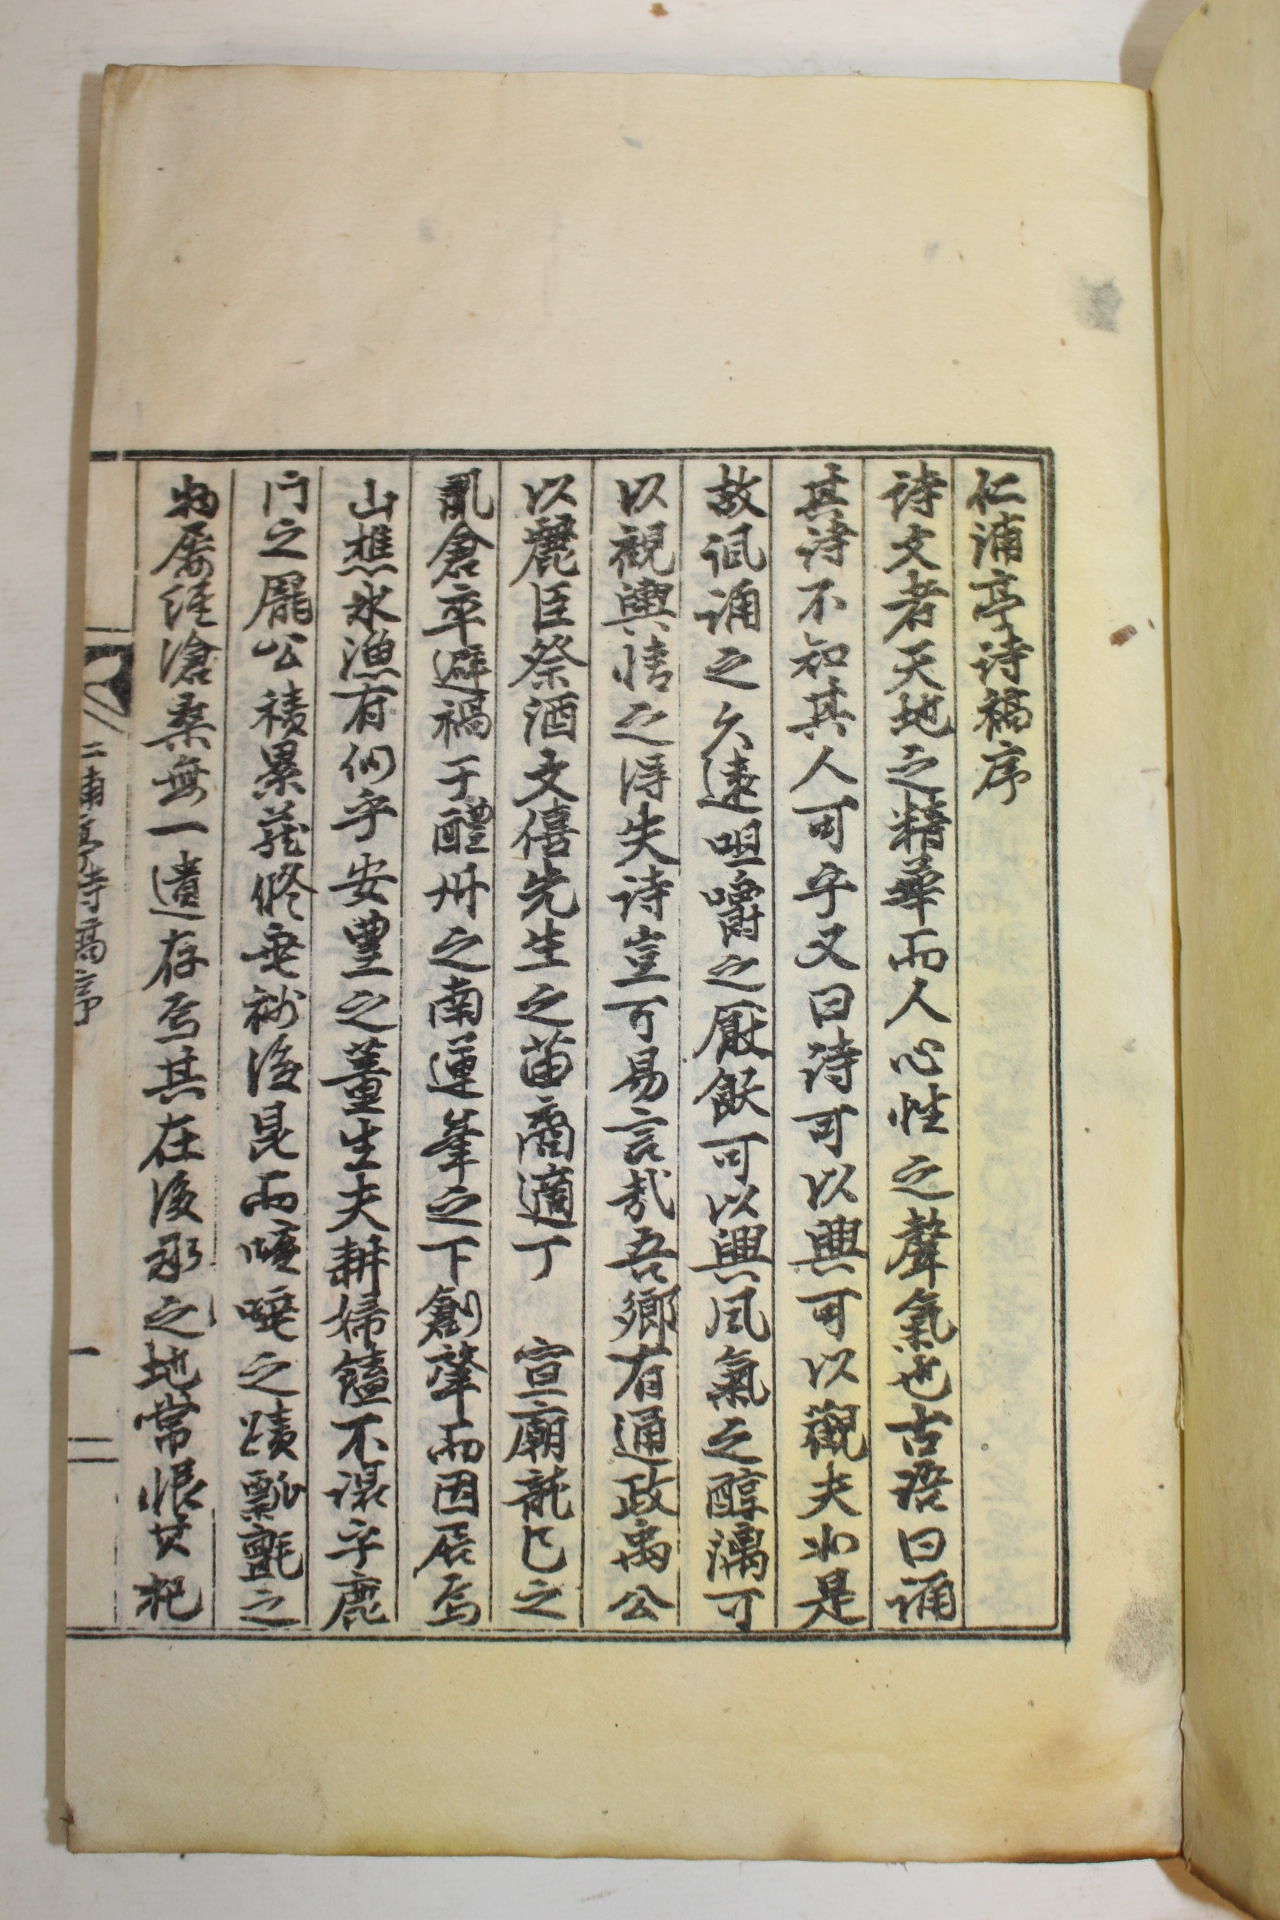 仁浦亭詩稿序
詩文者天地之精華而人心性之聲氣也古語曰誦
其詩不知其人可乎又曰詩可以興可以觀夫如是
故諷誦之久遠咀嚼之厭飫可以興風氣之醇漓可
以觀輿情之得失詩豈可易言哉吾鄉有通政禹公
以麗臣祭酒文僖先生之苗裔適丁 宣廟龍巳之
亂倉卒避禍于醴州之南運峯之下創肇而因居焉
山樵水漁有似乎安豐之董生夫耕婦饁不淚乎鹿
門之龐公積累蕤脩垂裕後昆而嘵嘵之蹟瓢氈之
物屢經滄桑無一遺存焉其在後承之地常恨其杞
仁浦亭詩稿序
一